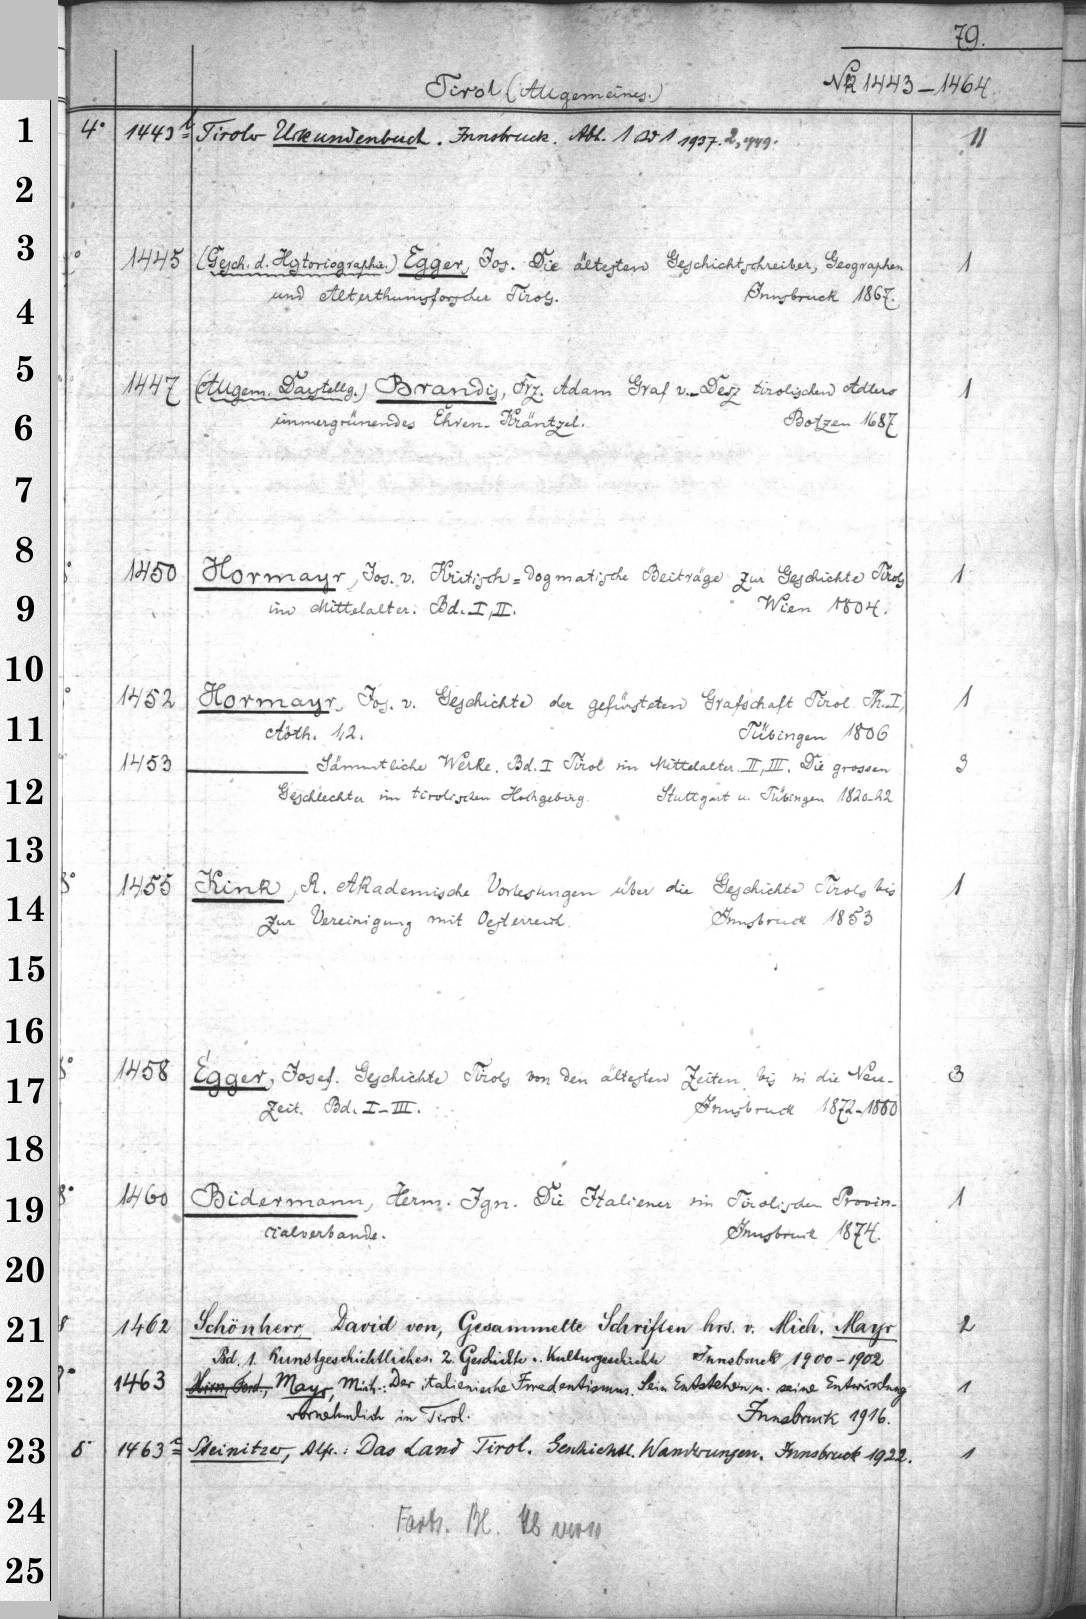 79.
Tirol (Allgemeines.) Nr. 1443–1464.
1 4° 1443b Tiroler Urkundenbuch. Innsbruck. Abt. 1 Bd 1 1937. 2, 1949. II
2
3 1445 (Gesch. d. Historiographie.) Egger, Jos. Die ältesten Geschichtschreiber, Geographen 1
4 und Alterthumsforscher Tirols. Innsbruck 1867.
5 1447 (Allgem. Darstellg.) Brandis, Frz. Adam Graf v. Desz tirolischen Adlers 1
6 immergrünendes Ehren-Kräntzel. Botzen 1687
7
8 1450 Hormayr, Jos. v. Kritisch=dogmatische Beiträge zur Geschichte Tirols 1
9 im Mittelalter. Bd. I, II. Wien 1804.
10 1452 Hormayr, Jos. v. Geschichte der gefürsteten Grafschaft Tirol. Th. I, 1
11 Abth. 1,2. Tübingen 1806
1453 Sämmtliche Werke. Bd. I Tirol im Mittelalter. II, III. Die grossen 3
12 Geschlechter im tirolischen Hochgebirg. Stuttgart u. Tübingen 1820–22
13
8° 1455 Kink, R. Akademische Vorlesungen über die Geschichte Tirols bis 1
14 zur Vereinigung mit Oesterreich. Innsbruck 1853
15
16
8° 1458 Egger, Josef. Geschichte Tirols von den ältesten Zeiten bis in die Neu- 3
17 zeit. Bd. I–III. Innsbruck 1872–1880
18
19 8° 1460 Bidermann, Herm. Ign. Die Italiener im Tirolischen Provin- 1
cialverbande. Innsbruck 1874.
20
21 8 1462 Schönherr David von, Gesammelte Schriften hrs. v. Mich. Mayr 2
Bd. 1. Kunstgeschichtliches. 2. Geschichte u. Kulturgeschichte Innsbruck 1900–1902
22 8° 1463 Hirn, Ferd., Mayr, Mich.: Der italienische Irredentismus. Sein Entstehen u. seine Entwicklung 1
vornehmlich in Tirol. Innsbruck 1916.
23 8 1463a Steinitzer, Alfr.: Das Land Tirol. Geschichtl. Wanderungen. Innsbruck 1922. 1
24 Forts. Bl. 78 verso
25